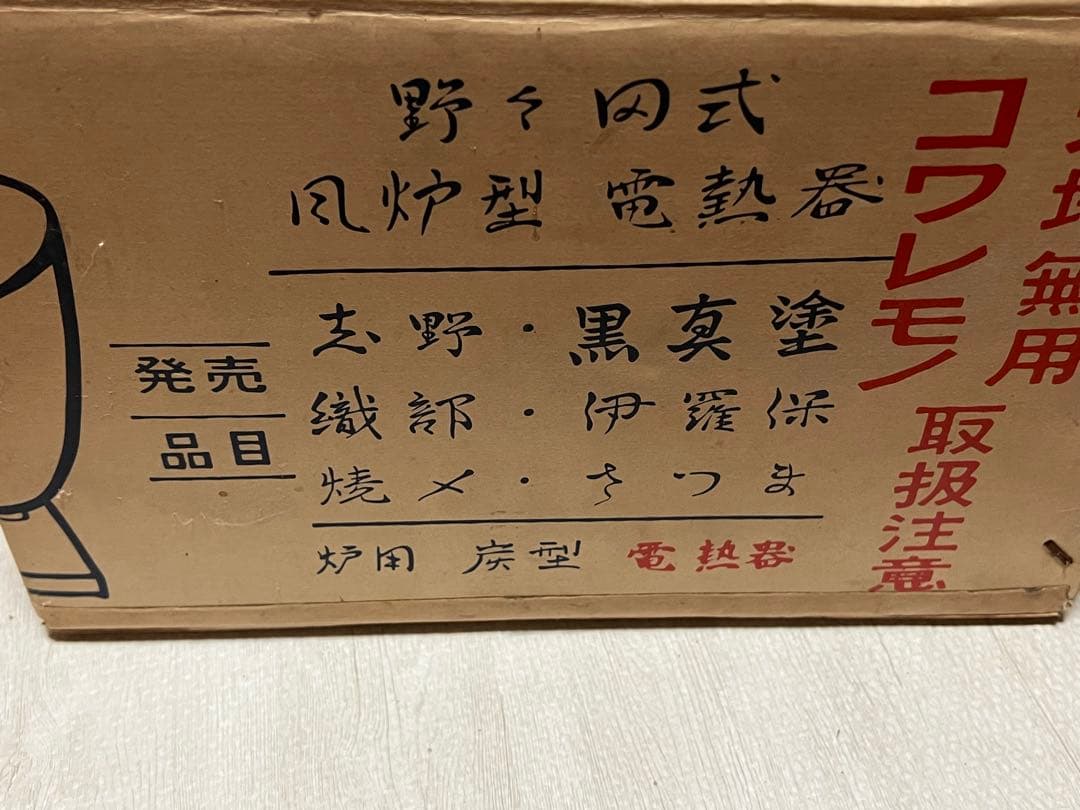 野々田式
風炉型 電熱器
志野・黒真塗
織部・伊羅保
焼〆・さつま
炉用 炭型 電熱器
発売
品目
コワレモノ
取扱注意
無用